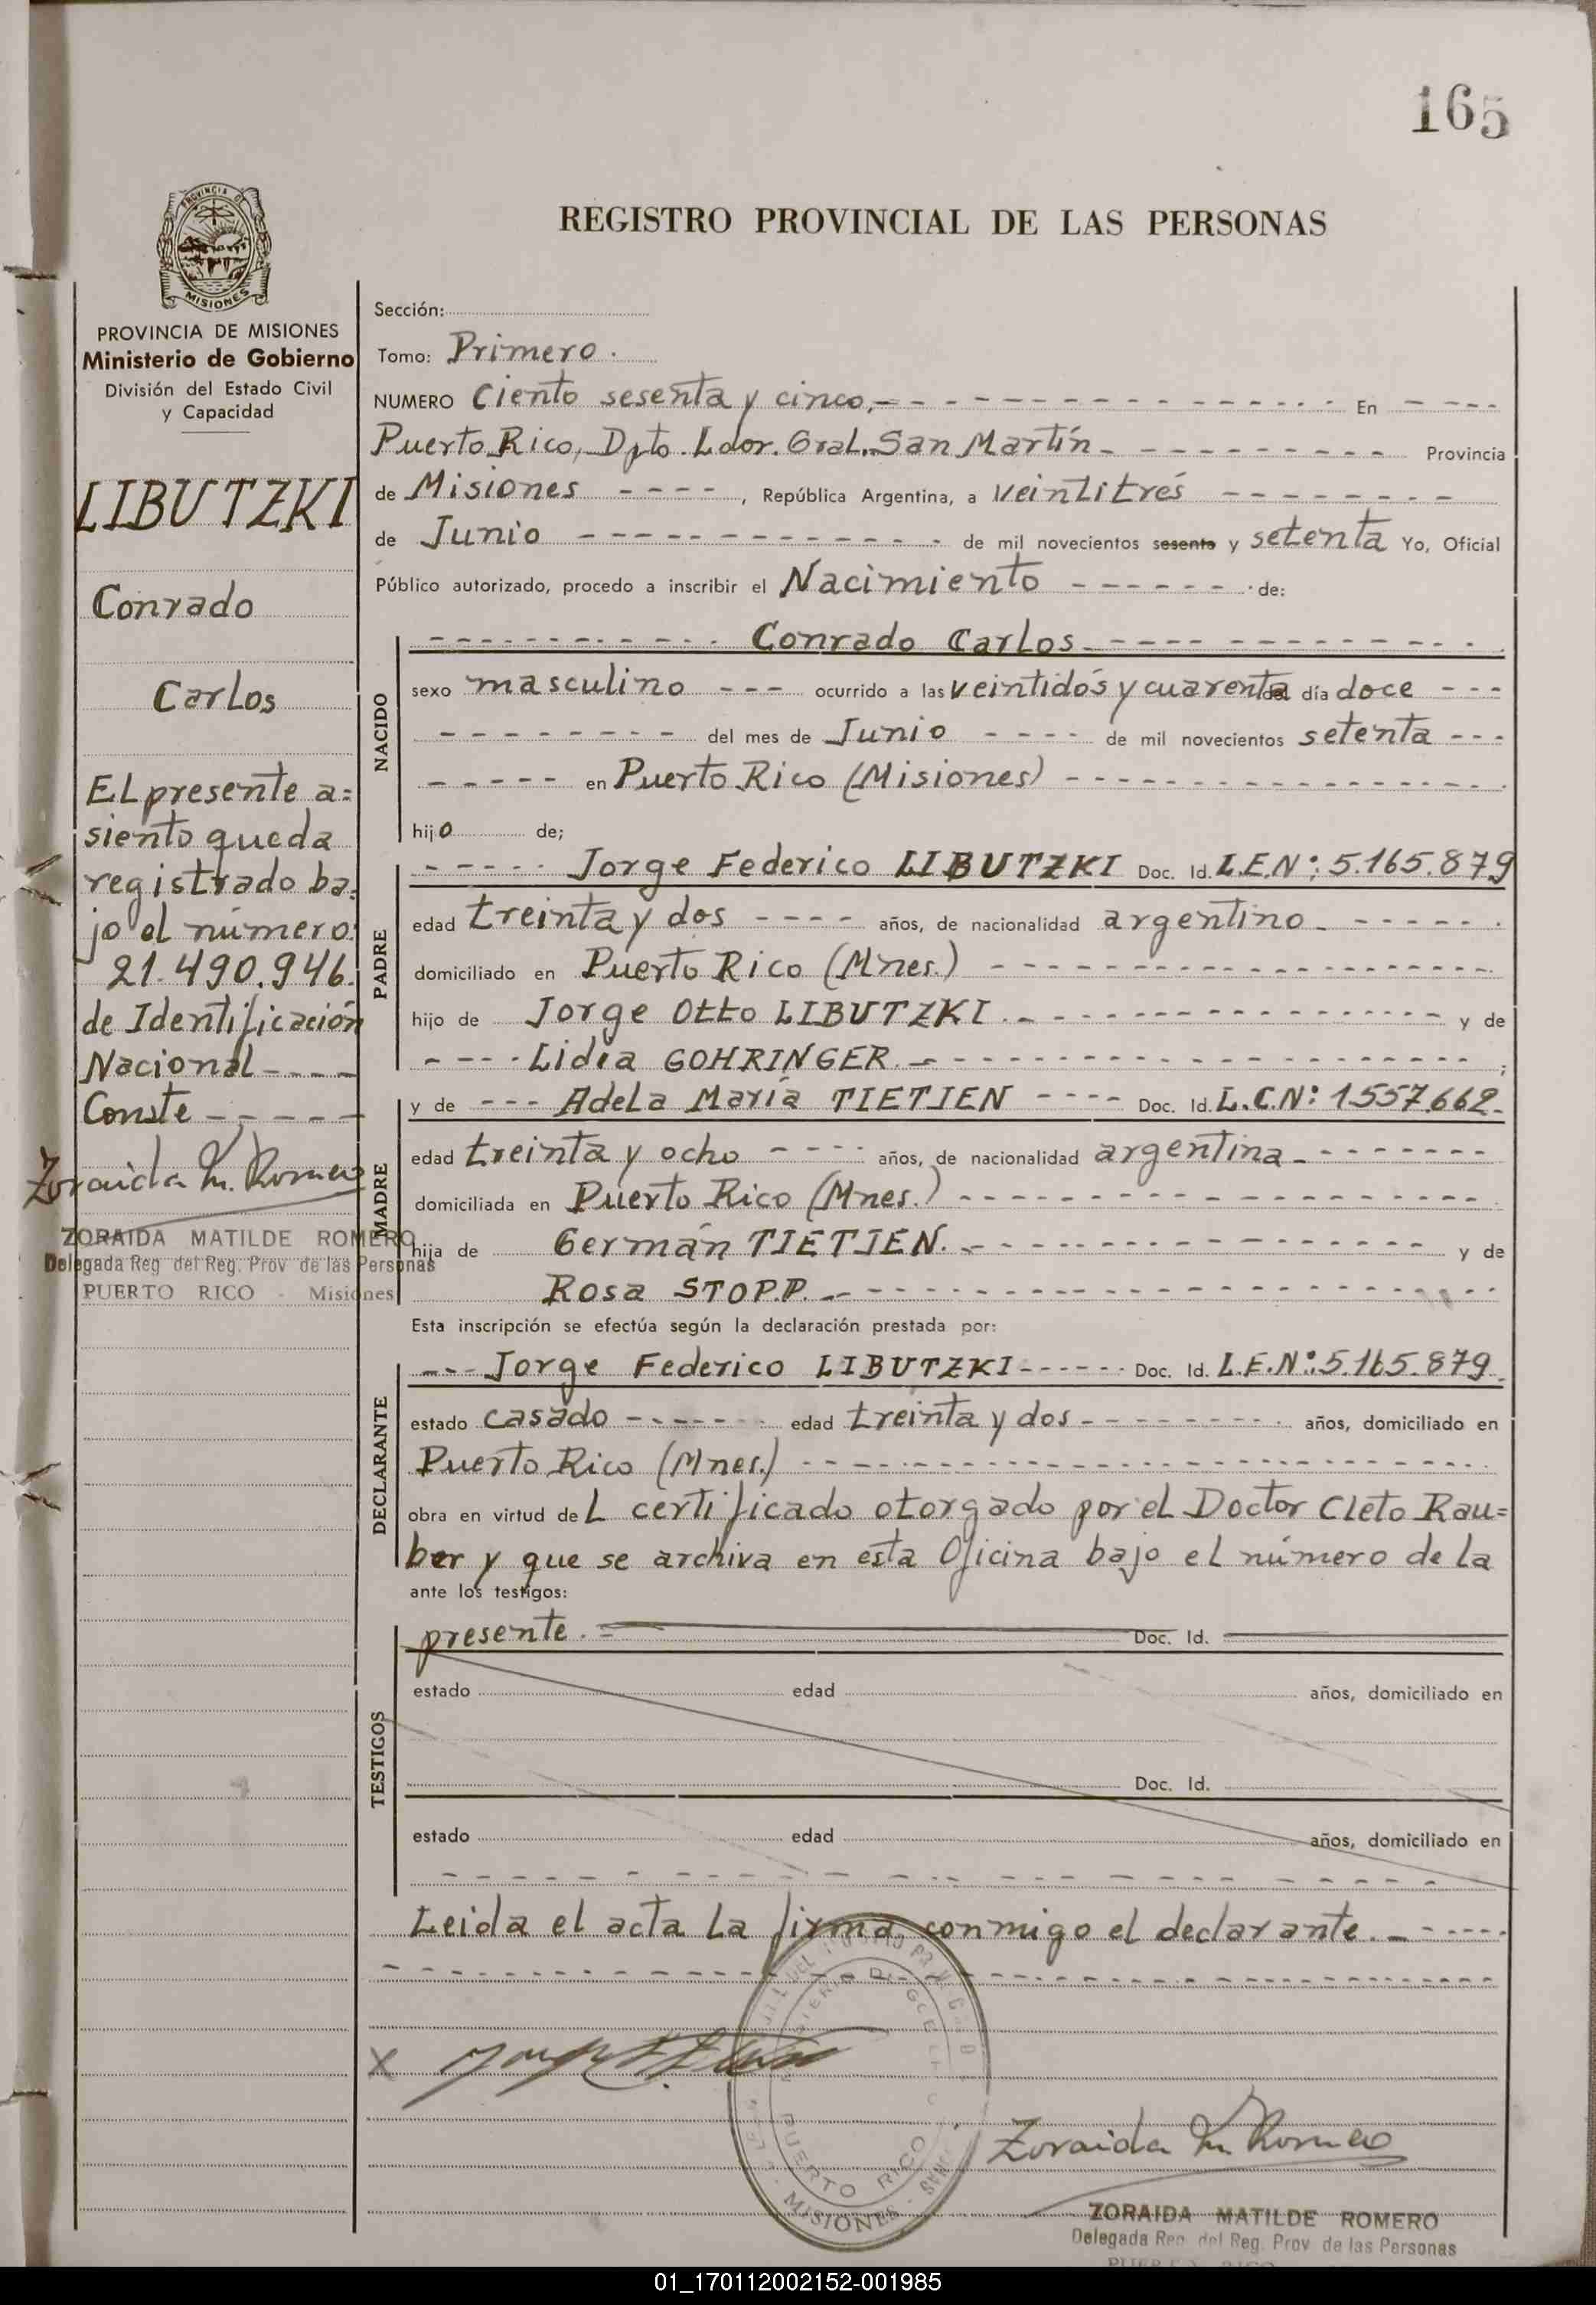 165
REGISTRO PROVINCIAL DE LAS PERSONAS
PROVINCIA DE MISIONES
Ministerio de Gobierno
División del Estado Civil
y Capacidad
LIBUTZKI
Conrado
Carlos
El presente a=
siento queda
registrado ba=
jo el número:
21.490.946.
de Identificación
Nacional - - - -
Conste - - - - -
Zoraida M. Romero
ZORAIDA MATILDE ROMERO
Delegada Reg del Reg. Prov de las Personas
PUERTO RICO - Misiones
Sección:
Tomo: Primero.
NUMERO Ciento sesenta y cinco,- - - - En - - - -
Puerto Rico, Dpto. Ldor. Gral. San Martín - - - - Provincia
de Misiones - - - - , República Argentina, a veintitrés - - - -
de Junio - - - - de mil novecientos sesenta y setenta Yo, Oficial
Público autorizado, procedo a inscribir el Nacimiento - - - - de:
- - - - Conrado Carlos - - - -
NACIDO
sexo masculino - - - ocurrido a las veintidós y cuarenta del día doce - - -
- - - - del mes de Junio - - - - de mil novecientos setenta - - -
- - - - en Puerto Rico (Misiones) - - - -
hijo de;
PADRE
- - - - Jorge Federico LIBUTZKI Doc. Id. L.E.Nº: 5.165.879
edad treinta y dos - - - - años, de nacionalidad argentino - - - -
domiciliado en Puerto Rico (Mnes.) - - - -
hijo de Jorge Otto LIBUTZKI. - - - - y de
- - - - Lidia GOHRINGER. - - - - ;
MADRE
y de - - - Adela María TIETJEN - - - - Doc. Id. L.C.Nº: 1.557.662.
edad treinta y ocho - - - - años, de nacionalidad argentina - - - -
domiciliada en Puerto Rico (Mnes.) - - - -
hija de Germán TIETJEN. - - - - y de
Rosa STOPP. - - - -
Esta inscripción se efectúa según la declaración prestada por:
DECLARANTE
- - - Jorge Federico LIBUTZKI - - - - Doc. Id. L.E.Nº: 5.165.879
estado casado - - - - edad treinta y dos - - - - años, domiciliado en
Puerto Rico (Mnes.) - - - -
obra en virtud del certificado otorgado por el Doctor Cleto Rau=
ber y que se archiva en esta Oficina bajo el número de la
ante los testigos:
TESTIGOS
presente. = Doc. Id.
estado edad años, domiciliado en
Doc. Id.
estado edad años, domiciliado en
Leida el acta la firma conmigo el declarante. - - - -
X
PUERTO RICO
MISIONES
Zoraida M. Romero
ZORAIDA MATILDE ROMERO
Delegada Reg. del Reg. Prov de las Personas
01_170112002152-001985